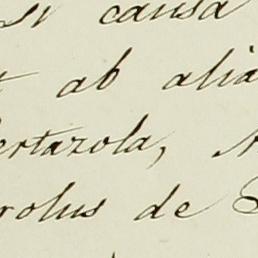 si causa
ab alia
ertazola,
rolus de